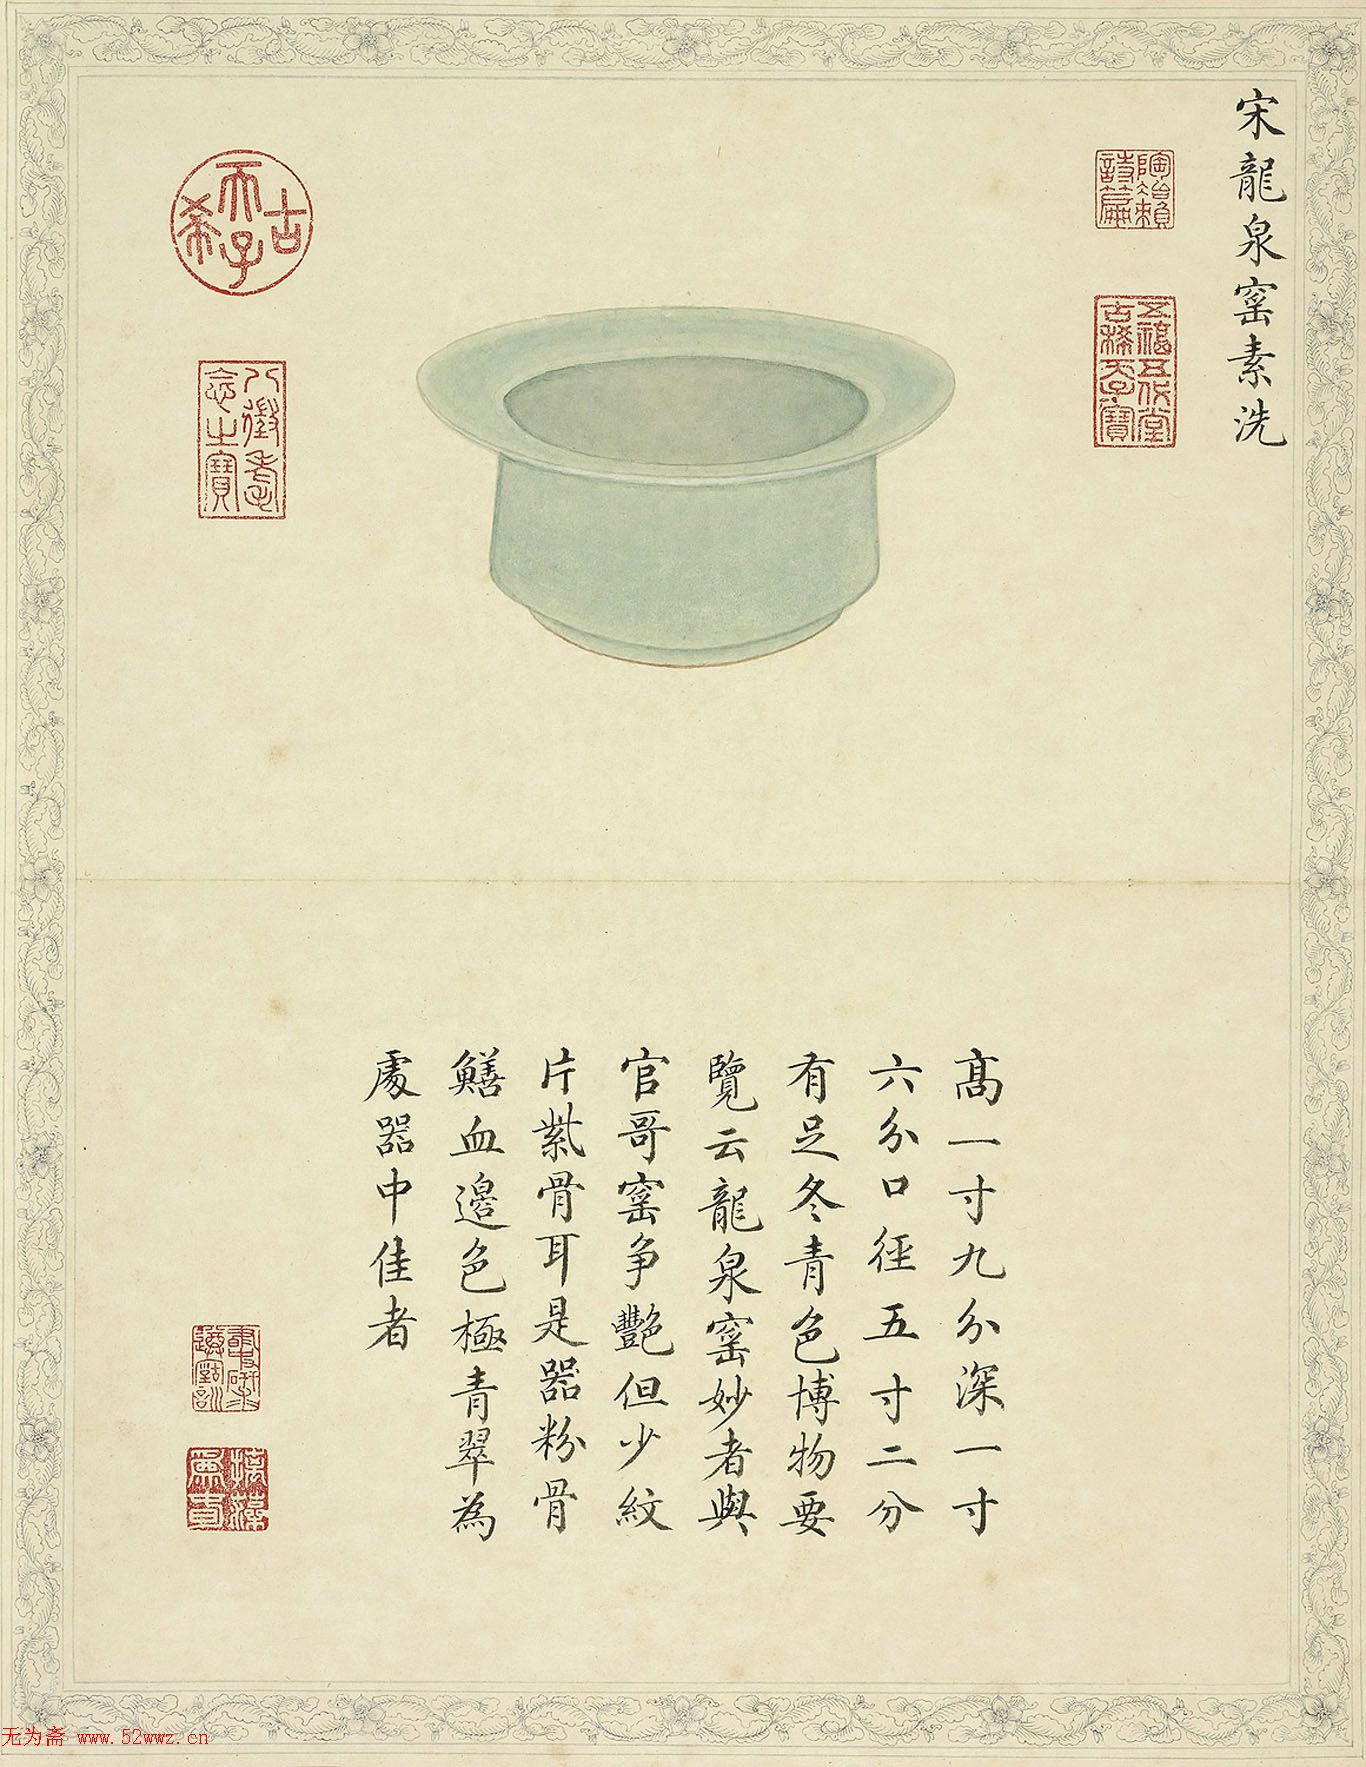 宋龍泉窰素洗
陶冶
賴詩篇
五福五代堂
古稀天子寶
古希天子
八徵耄
念之寶
髙一寸九分深一寸
六分口徑五寸二分
有足冬青色博物要
覽云龍泉窰妙者與
官哥窰争艷但少紋
片紫骨耳是器粉骨
鱔血邊色極青翠為
處器中佳者
掞藻
為春
无为斋 www.52wwz.cn